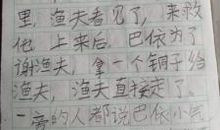 里，渔夫看见了，来救
他上来后，巴依为了
谢渔夫，拿一个铜子给
渔夫，渔夫直接定了。
一旁的人都说巴依小气